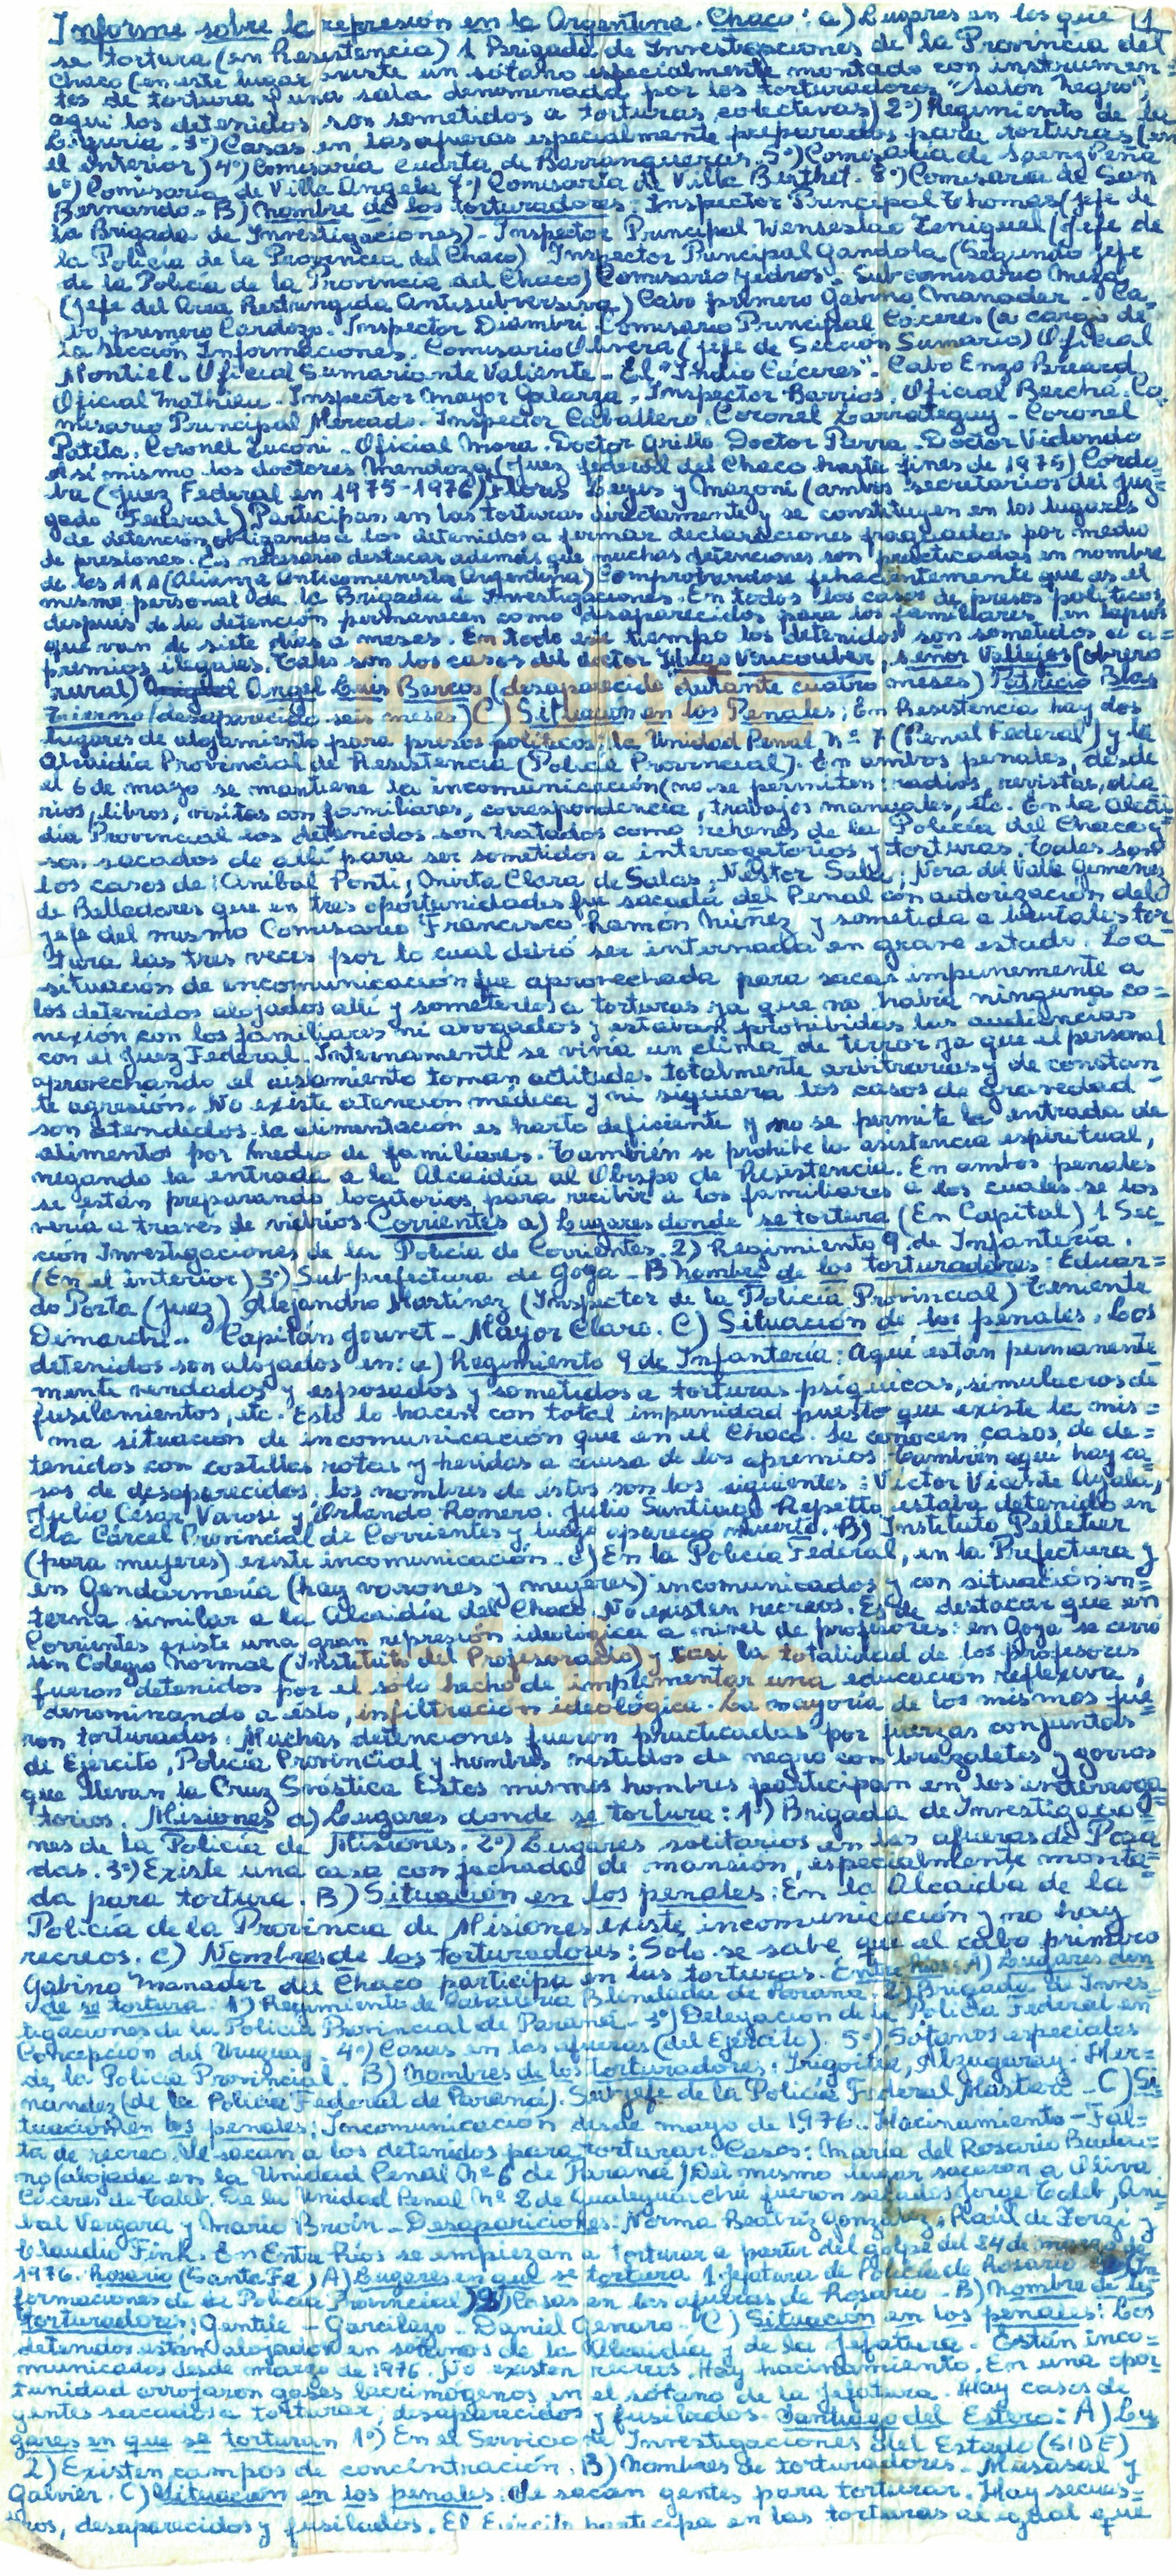 Informe sobre la represión en la Argentina. Chaco: a) Lugares en los que 11
se tortura (en Resistencia) 1 Brigada de Investigaciones de la Provincia del
Chaco (en este lugar existe un sótano especialmente montado con instrumen-
tos de tortura y una sala denominada por los torturadores "Salon Negro",
aquí los detenidos son sometidos a torturas colectivas) 2º) Regimiento de la
Liguria. 3º) Casas en las afueras especialmente preparadas para torturas (en
el interior) 4º) Comisaría cuarta de Barranqueras. 5º) Comisaría de Saenz Peña
6º) Comisaría de Villa Angela 7º) Comisaría de Villa Berthet. 8º) Comisaría de San
Bernardo. B) Nombre de los torturadores: Inspector Principal Thomas (jefe de
la Brigada de Investigaciones). Inspector Principal Wenseslao Ceniquel (Jefe de
la Policía de la Provincia del Chaco) Inspector Principal Gandola (Segundo jefe
de la Policía de la Provincia del Chaco) Comisario Yedros. Subcomisario Meza
(jefe del Area Restringida Antisubversiva) Cabo primero Gabino Manader. Ca-
bo primero Cardozo. Inspector Diambri Comisario Principal Cáceres (a cargo de
la Sección Informaciones. Comisario Olivera (jefe de Sección Sumario) Oficial
Montiel. Oficial Sumariante Valiente. El "Indio Cáceres". Cabo Enzo Breard.
Oficial Mathieu. Inspector Mayor Galarza. Inspector Barrios. Oficial Berchá. Co
misario Principal Mercado. Inspector Caballero. Coronel Larrateguy. Coronel
Patetta. Coronel Zuconi. Oficial Mora. Doctor Grillo. Doctor Parra. Doctor Vidondo
Así mismo los doctores Mendoza (juez federal del Chaco hasta fines de 1975) Cordo-
ba (Juez Federal en 1975-1976) Flores Leyes y Mazoni (ambos secretarios del Juz=
gado Federal) Participan en las torturas directamente y se constituyen en los lugares
de detención obligando a los detenidos a firmar declaraciones fraguadas por medio
de presiones. Es necesario destacar además que muchas detenciones son practicadas en nombre
de las AAA (Alianza Anticomunista Argentina) Comprobándose fehacientemente que es el
mismo personal de la Brigada de Investigaciones. En todos los casos de presos políticos,
después de la detención permanecen como desaparecidos para los familiares en lapsos
que van de siete días a meses. En todo ese tiempo los detenidos son sometidos a a-
premios ilegales. Tales son los casos del doctor Hugo Voucouber, señor Vallejos (obrero
rural) Angel Luis Barcos (desaparecido durante cuatro meses) Patricio Blas
Tierno (desaparecido seis meses) C) Situacion en los Penales; En Resistencia hay dos
lugares de alojamiento para presos políticos; la Unidad Penal Nº 7 (Penal Federal) y la
Alcaidía Provincial de Resistencia (Policía Provincial). En ambos penales, desde
el 6 de mayo se mantiene la incomunicación (no se permiten: radios, revistas, dia-
rios, libros, visitas con familiares, correspondencia, trabajos manuales, etc. En la Alcai
día Provincial los detenidos son tratados como rehenes de la Policía del Chaco y
son sacados de allí para ser sometidos a interrogatorios y torturas. Tales son
los casos de: Anibal Ponti; Mirta Clara de Salas; Néstor Sala; Nora del Valle Gimenez
de Valladares que en tres oportunidades fue sacada del Penal con autorización del
jefe del mismo Comisario Francisco Ramón Núñez y sometida a brutales tor-
tura las tres veces por lo cual debió ser internada en grave estado. Los
situación de incomunicación fue aprovechada para sacar impunemente a
los detenidos alojados allí y someterlos a torturas ya que no había ninguna co=
nexión con los familiares ni abogados y estaban prohibidas las audiencias
con el Juez Federal. Internamente se vivía un clima de terror ya que el personal
aprovechando el aislamiento toman actitudes totalmente arbitrarias y de constan
te agresión. No existe atención médica y ni siquiera los casos de gravedad
son atendidos, la alimentación es harto deficiente y no se permite la entrada de
alimentos por medio de familiares. También se prohibe la asistencia espiritual,
negando la entrada a la Alcaidía al Obispo de Resistencia. En ambos penales
se están preparando locutorios para recibir a los familiares a los cuales se los
vería a través de vidrios. Corrientes a) Lugares donde se tortura (En Capital) 1 Sec-
ción Investigaciones de la Policía de Corrientes. 2) Regimiento 9 de Infantería.
(En el interior) 3º) Sub-prefectura de Goya. B Nombres de los torturadores: Eduar=
do Porta (juez) Alejandro Martínez (Inspector de la Policía Provincial) Teniente
Demarchi. Capitán Jouvet - Mayor Claro. C) Situación de los penales. Los
detenidos son alojados en: a) Regimiento 9 de Infantería: Aquí están permanente-
mente vendados y esposados y sometidos a torturas psíquicas, simulacros de
fusilamientos, etc. Esto lo hacen con total impunidad puesto que existe la mis=
ma situación de incomunicación que en el Chaco. Se conocen casos de de=
tenidos con costillas rotas y heridas a causa de los apremios. También aquí hay ca-
sos de desaparecidos, los nombres de éstos son los siguientes: Víctor Vicente Ayala,
Julio César Varosi y Orlando Romero. Julio Santiago Repetto estaba detenido en
la Cárcel Provincial de Corrientes y luego apareció muerto. B) Instituto Pelletier
(para mujeres) existe incomunicación. c) En la Policía Federal, en la Prefectura y
en Gendarmería (hay varones y mujeres) incomunicados y con situación in=
terna similar a la Alcaidía del Chaco. No existen recreos. Es de destacar que en
Corrientes existe una gran represión ideológica a nivel de profesores: en Goya se cerró
un Colegio Normal (Instituto del Profesorado) y casi la totalidad de los profesores
fueron detenidos por el sólo hecho de implementar una educación reflexiva,
denominando a esto, infiltración ideológica. La mayoría de los mismos fue-
ron torturados. Muchas detenciones fueron practicadas por fuerzas conjuntas
de Ejército, Policía Provincial y hombres vestidos de negro con brazaletes y gorros
que llevan la Cruz Svástica Estos mismos hombres participan en los interroga
torios. Misiones a) Lugares donde se tortura: 1º) Brigada de Investigacio-
nes de la Policía de Misiones. 2º) Lugares solitarios en las afueras de Posa
das. 3º) Existe una casa con fachada de mansión, especialmente monta=
da para tortura. B) Situación en los penales: En la Alcaidía de la
Policía de la Provincia de Misiones existe incomunicación y no hay
recreos. C) Nombres de los torturadores: Solo se sabe que el cabo primero
Gabino Manader del Chaco participa en las torturas. Entre Ríos. A) Lugares don
de se tortura. 1º) Regimiento de Caballería Blindada de Paraná. 2) Brigada de Inves
tigaciones de la Policía Provincial de Paraná. 3º) Delegación de la Policía Federal en
Concepción del Uruguay. 4º) Casas en las afueras (del Ejército). 5º) Sótanos especiales
de la Policía Provincial. B) Nombres de los torturadores: Irigoitia, Alzuguray. Her-
nandez (de la Policía Federal de Paraná). Subjefe de la Policía Federal Masteri. C) Si
tuación en los penales: Incomunicación desde mayo de 1976. Hacinamiento - Fal=
ta de recreo. Se sacan a los detenidos para torturar. Casos: Maria del Rosario
(alojada en la Unidad Penal Nº 6 de Paraná) Del mismo lugar sacaron a Oliva
Cáceres de Taleb. De la Unidad Penal Nº 2 de Gualeguaichú fueron sacados Jorge Taleb, Ani
bal Vergara y Mario Broin. Desapariciones: Norma Beatriz Gonzalez, Raúl de Forzi y
Claudio Fink. En Entre Ríos se empiezan a torturar a partir del golpe del 24 de marzo de
1976. Rosario (Santa Fe) A) Lugares en que se tortura 1 Jefatura de Policía de Rosario In
formaciones de la Policía Provincial) 2) Casas en las afueras de Rosario. B) Nombre de los
torturadores: Gentile - Garcilazo - Daniel Genaro. C) Situación en los penales: Los
detenidos están alojados en sótanos de la Alcaidía y de la Jefatura. Están inco-
municados desde marzo de 1976. No existen recreos. Hay hacinamiento. En una opor-
tunidad arrojaron gases lacrimógenos en el sótano de la Jefatura. Hay casos de
gentes sacadas a torturar, desaparecidos y fusilados. Santiago del Estero: A) Lu
gares en que se torturan 1º) En el Servicio de Investigaciones del Estado (SIDE)
2) Existen campos de concentración. B) Nombres de torturadores. Musasal y
Garvier. C) Situacion en los penales: Se sacan gentes para torturar. Hay secues=
tros, desaparecidos y fusilados. El Ejército participa en las torturas al igual que
infobae
infobae